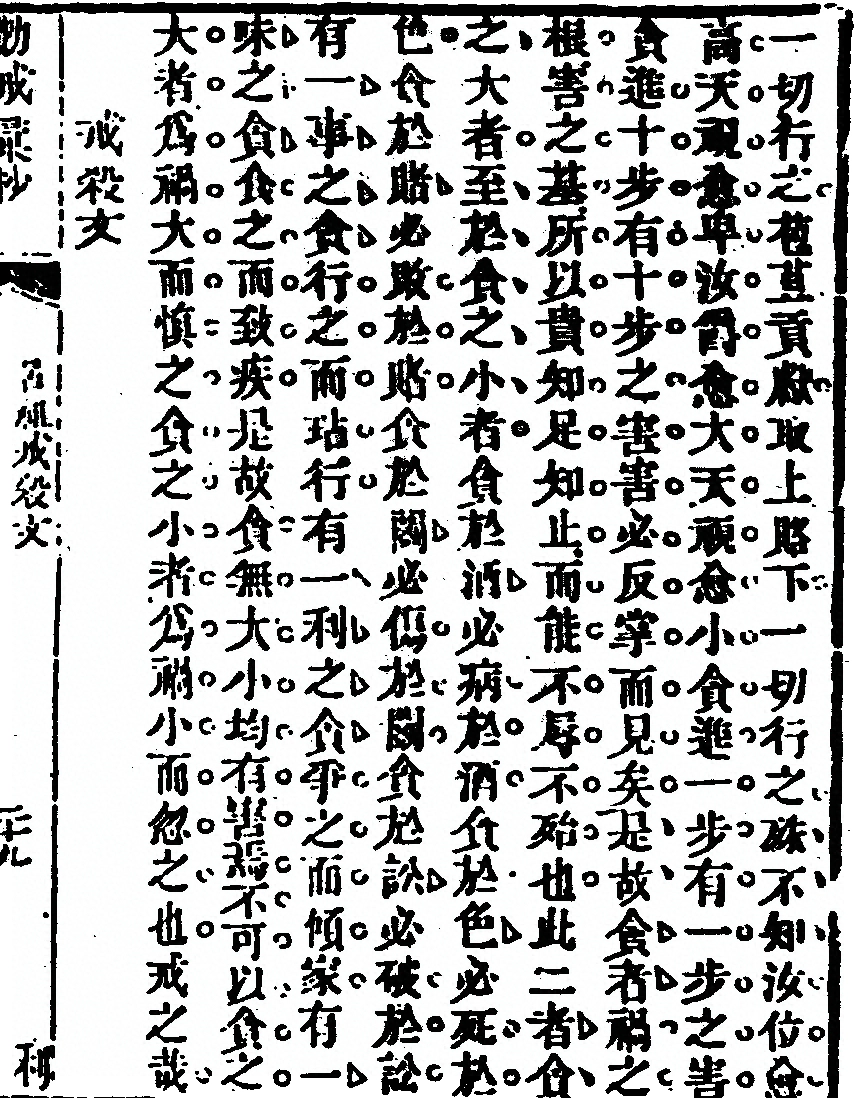 一切行之苞苴貢獻取上賂下一切行之 不知汝位愈
高天視愈卑汝爵愈大天顧愈小貪進一步有一步之害
貪進十步有十步之害害必反掌而見矣是故貪者禍之
根害之基所以貴知足知止而能不辱不殆也此二者貪
之大者至於貪之小者貪於酒必病於酒貪於色必死於
色貪於賭必敗於賭貪於鬪必傷於鬪貪於訟必破於訟
有一事之貪行之而玷行有一利之貪爭之而傾家有一
味之貪食之而致疾是故貪無大小均有害焉不可以貪之
大者為禍大而慎之貪之小者為禍小而忽之也戒之哉
戒殺文
戒殺文
二十九
利